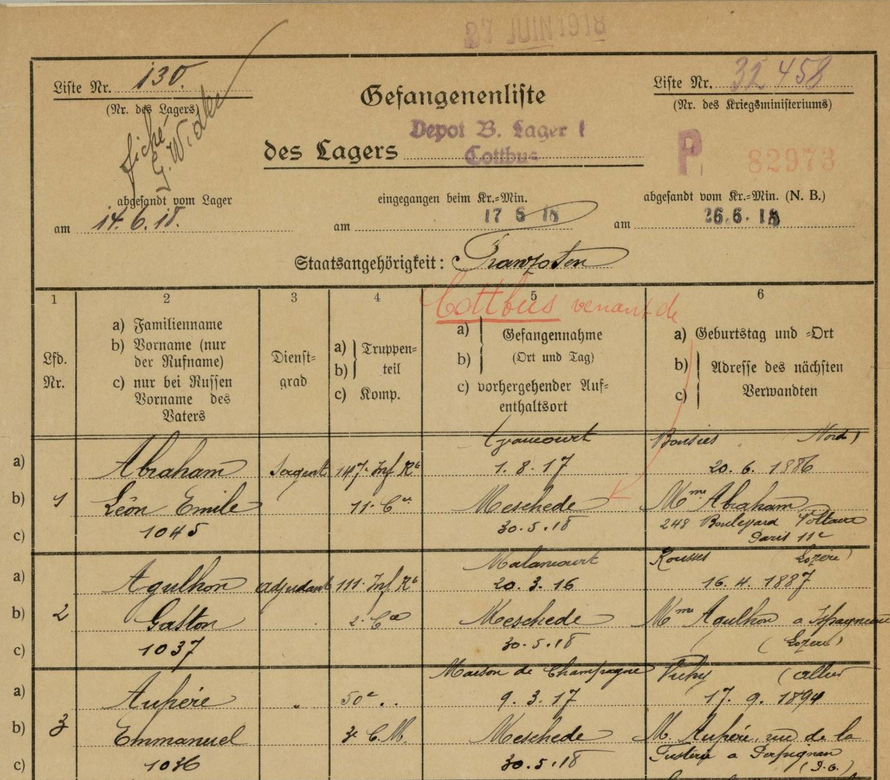 27 JUIN 1918
Liste Nr. 130.
(Nr. des Lagers)
fiché
G. Widk
Gefangenenliste
des Lagers Depot B. Lager I
Cottbus
Liste Nr. 32 458
(Nr. des Kriegsministeriums)
P. 82973
abgesandt vom Lager
am 14.6.18.
eingegangen beim Kr.-Min.
am 17 6 18
abgesandt vom Kr.-Min. (N. B.)
am 26.6.18
Staatsangehörigkeit: Franzosen
Cottbus venant de
1
Lfd.
Nr.
2
a) Familienname
b) Vorname (nur
der Rufname)
c) nur bei Russen
Vorname des
Vaters
3
Dienst-
grad
4
a) Truppen-
b) teil
c) Komp.
5
a) Gefangennahme
b) (Ort und Tag)
c) vorhergehender Auf-
enthaltsort
6
a) Geburtstag und -Ort
b) Adresse des nächsten
c) Verwandten
a)
b)
c)
1
Abraham
Léon Emile
1045
Sergent
147e Inf Rt
11e Cie
1.8.17
Meschede
30.5.18
Bousies Nord)
20. 6. 1886
Mme Abraham
248 Boulevard Voltaire
Paris 11e
a)
b)
c)
2
Agulhon
Gaston
1037
adjudant
111e Inf Rt
2e Cie
Malancourt
20.3.16
Meschede
30.5.18
Rousses Lozère)
16. 4. 1887
Mme Agulhon a
(Lozère)
a)
b)
c)
3
Aupéré
Emmanuel
1036
"
50e ..
3e C.M.
Maison de Champagne
9.3.17
Meschede
30.5.18
Vichy (allier
17. 9. 1894
M. Aupéré, rue de la
a Perpignan